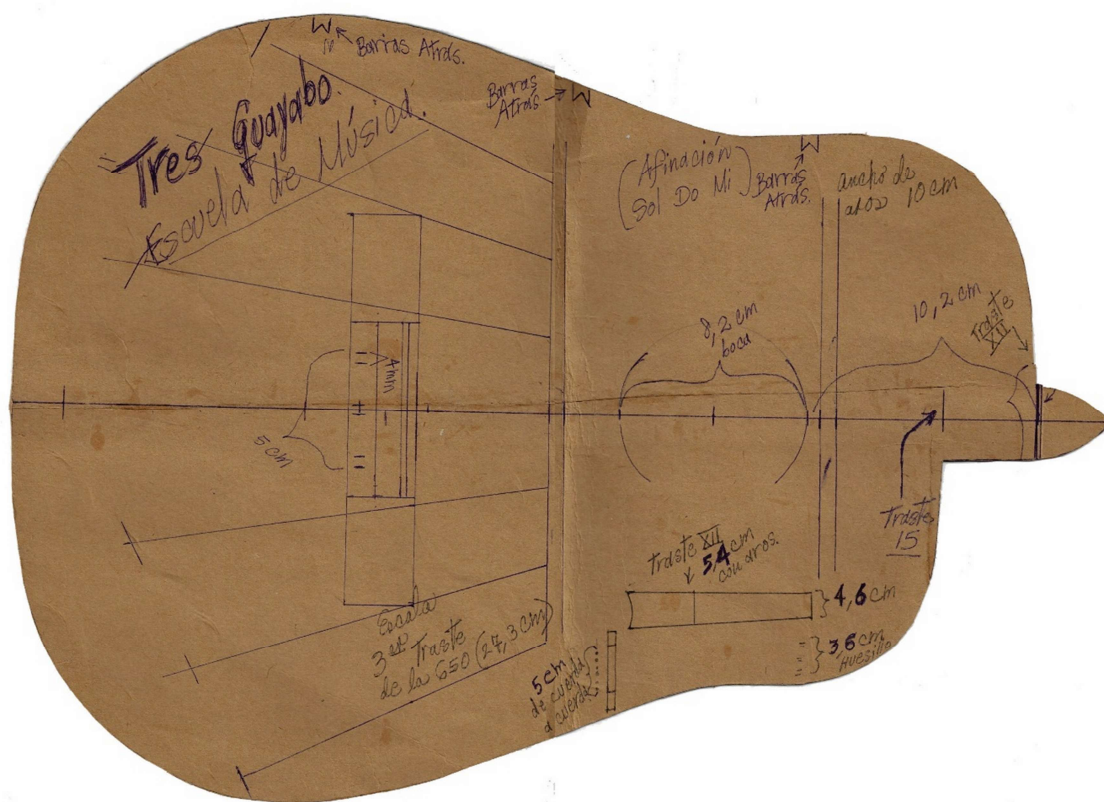 Barras Atrás.
Tres Guayabo.
Escuela de Música.
Barras
Atrás
(Afinación
Sol Do Mi)
Barras
Atrás.
ancho de
aros 10 cm
8,2 cm
boca
10,2 cm
Traste
XII
4mm
5 cm
Traste
15
Traste XII
54 cm
con aros.
4,6 cm
36 cm
Huesillo
Escala
3er Traste
de la 650 (27,3 cm)
5 cm
de cuerda
a cuerda